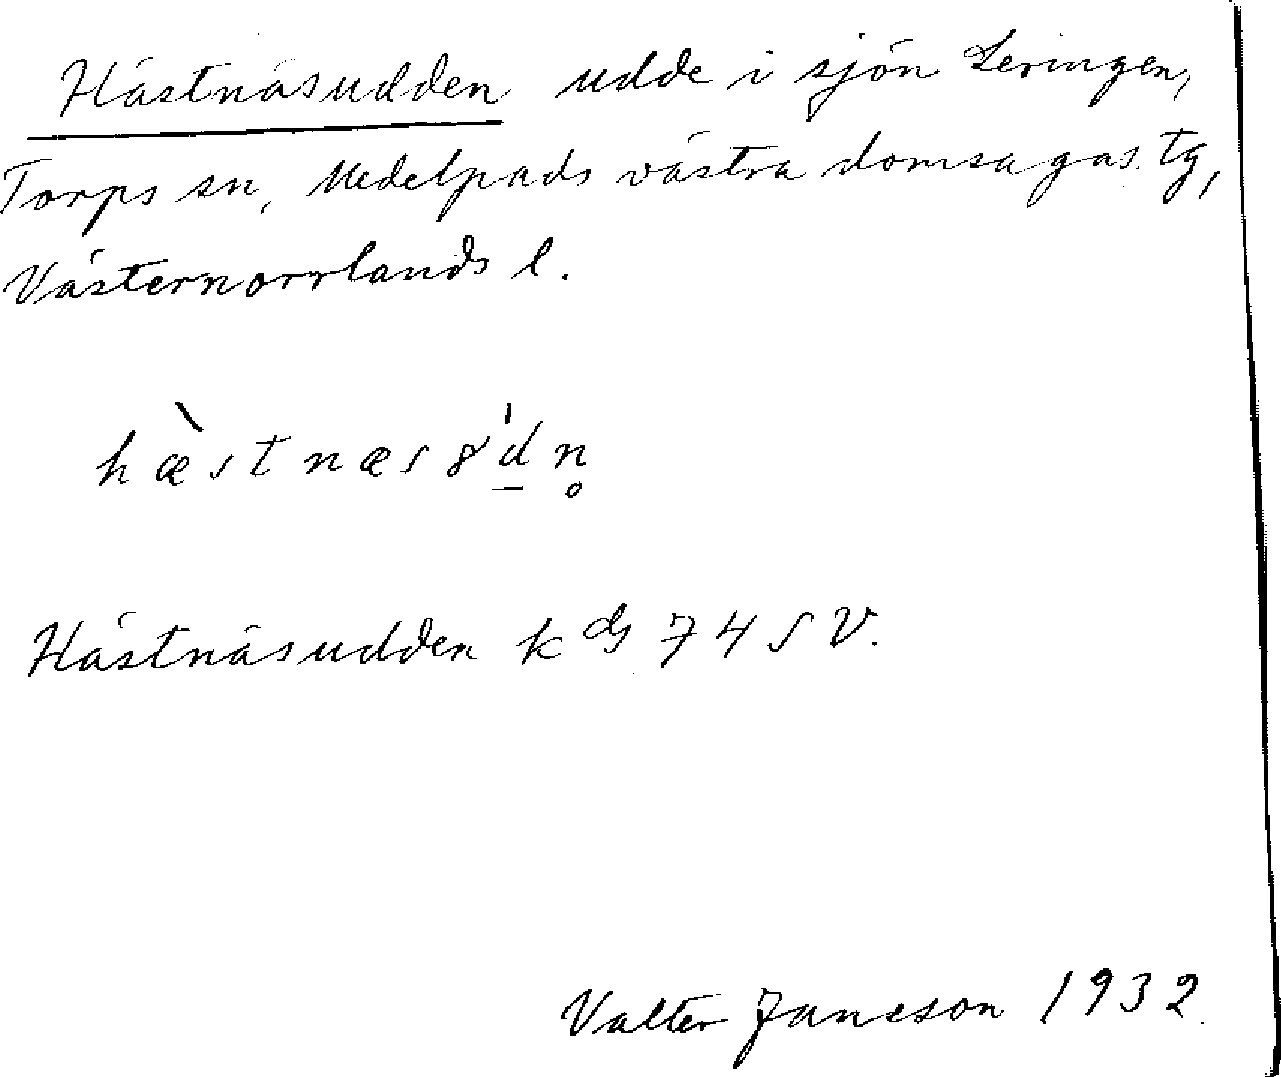 Hästnäsudden udde i sjön Leringen,
Torps sn, Medelpads västra domsagas tg,
Västernorrlands l.
hæ̀stnæs8'd̲n̥
Hästnäsudden k ds 74 SV.
Valter Jansson 1932.